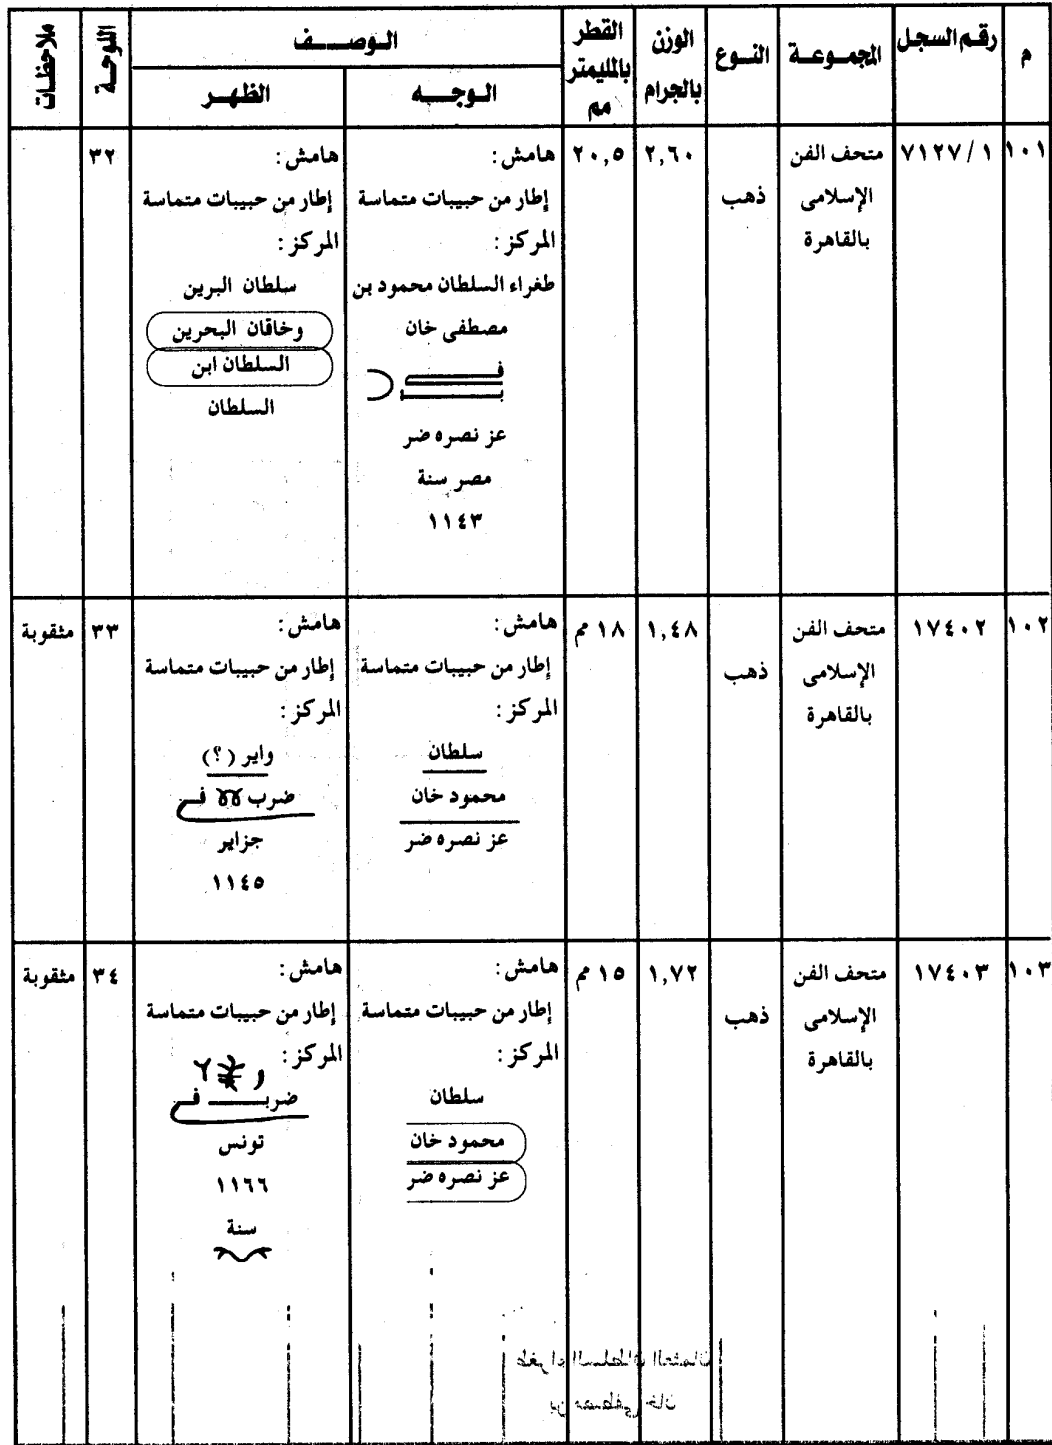 م
رقم السجل
المجموعة
النوع
الوزن
بالجرام
القطر
بالمليمتر
مم
الوصف
الوجه
الظهر
اللوحة
ملاحظات
١٠١
٧١٢٧/١
متحف الفن
الإسلامى
بالقاهرة
ذهب
٢,٦٠
٢٠,٥
هامش :
إطار من حبيبات متماسة
المركز :
طغراء السلطان محمود بن
مصطفى خان
فى
عز نصره ضر
مصر سنة
١١٤٣
هامش :
إطار من حبيبات متماسة
المركز :
سلطان البرين
وخاقان البحرين
السلطان ابن
السلطان
٣٢
١٠٢
١٧٤٠٢
متحف الفن
الإسلامى
بالقاهرة
ذهب
١,٤٨
١٨ مم
هامش :
إطار من حبيبات متماسة
المركز :
سلطان
محمود خان
عز نصره ضر
هامش :
إطار من حبيبات متماسة
المركز :
واير (؟)
ضرب فى
جزاير
١١٤٥
٣٣
مثقوبة
١٠٣
١٧٤٠٣
متحف الفن
الإسلامى
بالقاهرة
ذهب
١,٧٢
١٥ مم
هامش :
إطار من حبيبات متماسة
المركز :
سلطان
محمود خان
عز نصره ضر
هامش :
إطار من حبيبات متماسة
المركز :
ضرب فى
تونس
١١٦٦
سنة
٣٤
مثقوبة